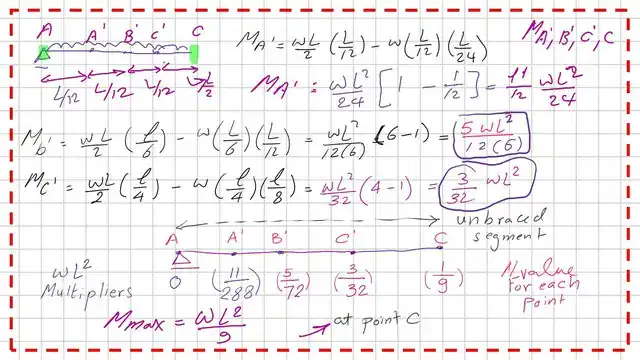 A A' B' C' C
L/12 L/12 L/12
M_A' = wL/2 (L/12) - w(L/12)(L/24)
M_A',B',C',C
M_A' = wL²/24 [1 - 1/12] = 11/12 wL²/24
M_b' = wL/2 (l/6) - w(L/6)(L/12) = wL²/12(6) (6-1) = 5wL²/12(6)
M_c' = wL/2 (l/4) - w(l/4)(l/8) = wL²/32 (4-1) = 3/32 wL²
unbraced segment
A A' B' C' C
wL² Multipliers
0 (11/288) (5/72) (3/32) (1/9)
M value for each point
M_max = wL²/9 at point C